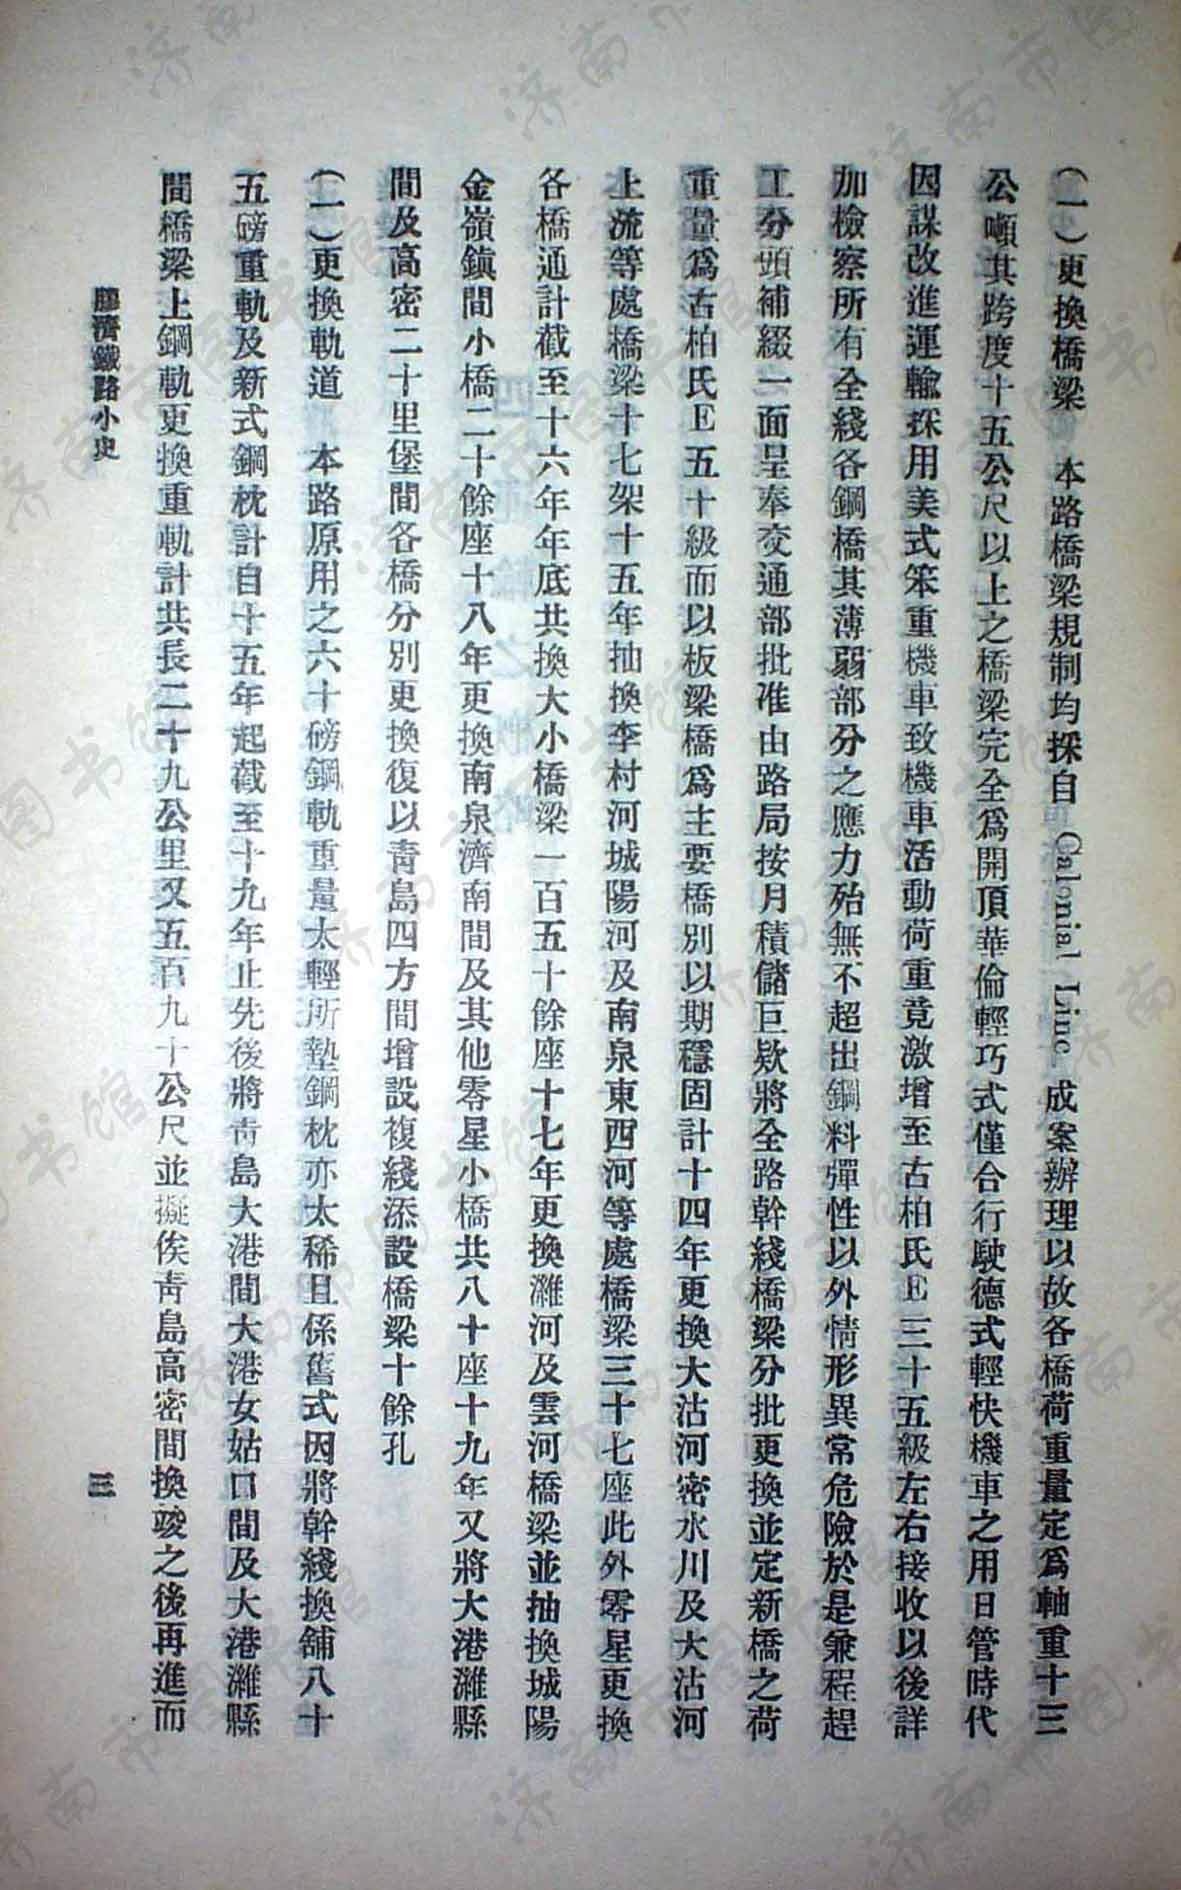 (一)更換橋梁　本路橋梁規制均採自 Calonial Line 成案辦理以故各橋荷重量定爲軸重十三
公噸其跨度十五公尺以上之橋梁完全爲開頂華倫輕巧式僅合行駛德式輕快機車之用日管時代
因謀改進運輸採用美式笨重機車致機車活動荷重竟激增至古柏氏E三十五級左右接收以後詳
加檢察所有全綫各鋼橋其薄弱部分之應力殆無不超出鋼料彈性以外情形異常危險於是兼程趕
工分頭補綴一面呈奉交通部批准由路局按月積儲巨欵將全路幹綫橋梁分批更換並定新橋之荷
重量爲古柏氏E五十級而以板梁橋爲主要橋別以期穩固計十四年更換大沽河密水川及大沽河
上流等處橋梁十七架十五年抽換李村河城陽河及南泉東四河等處橋梁三十七座此外零星更換
各橋通計截至十六年年底共換大小橋梁一百五十餘座十七年更換濰河及雲河橋梁並抽換城陽
金嶺鎮間小橋二十餘座十八年更換南泉濟南間及其他零星小橋共八十座十九年又將大港濰縣
間及高密二十里堡間各橋分別更換復以靑島四方間增設複綫添設橋梁十餘孔
(一)更換軌道　本路原用之六十磅鋼軌重量太輕所墊鋼枕亦太稀且係舊式因將幹綫換舖八十
五磅重軌及新式鋼枕計自十五年起截至十九年止先後將靑島大港間大港女姑口間及大港濰縣
間橋梁上鋼軌更換重軌計共長二十九公里又五百九十公尺並擬俟靑島高密間換竣之後再進而
膠濟鐵路小史
三
济南市图书馆